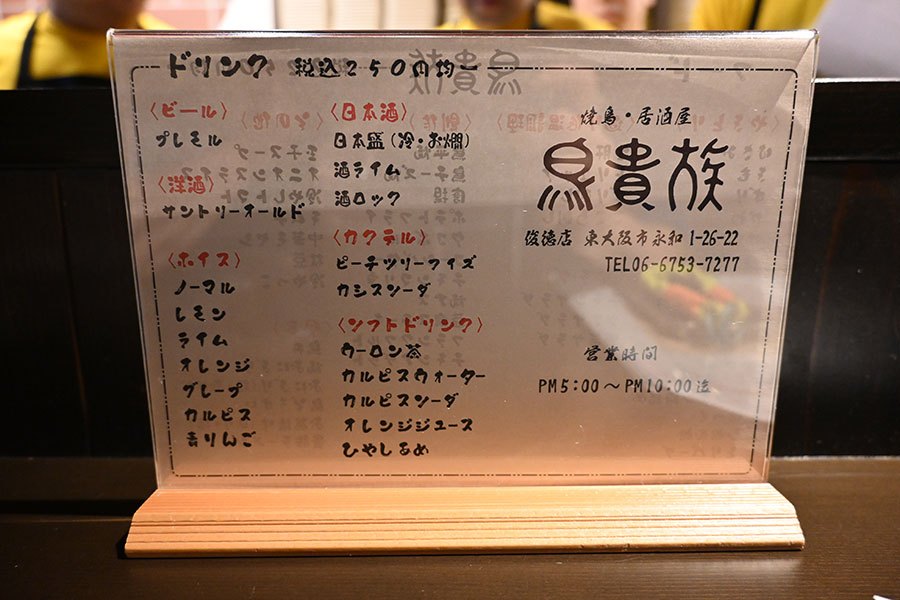 ドリンク 税込250円均一
〈ビール〉
プレモル
〈洋酒〉
サントリーオールド
〈ホイス〉
ノーマル
レモン
ライム
オレンジ
グレープ
カルピス
青りんご
〈日本酒〉
日本盛(冷・お燗)
酒ライム
酒ロック
〈カクテル〉
ピーチツリーフイズ
カシスソーダ
〈ソフトドリンク〉
ウーロン茶
カルピスウォーター
カルピスソーダ
オレンジジュース
ひやしあめ
焼鳥・居酒屋
鳥貴族
俊徳店 東大阪市永和 1-26-22
TEL06-6753-7277
営業時間
PM5:00～PM10:00迄